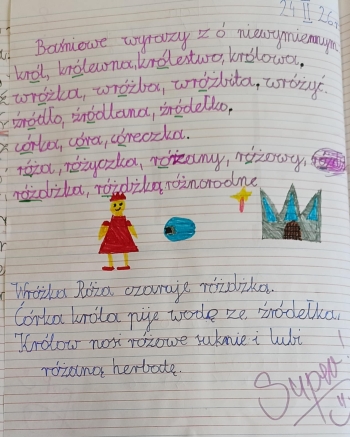 24 II 26r
Baśniowe wyrazy z ó niewymiennym
król, królewna, królestwo, królowa,
wróżka, wróżba, wróżbita, wróżyć.
źródło, źródlana, źródełko,
córka, córa, córeczka.
róża, różyczka, różany, różowy,
różdżka, różdżką, różnorodne
Wróżka Róża czaruje różdżką.
Córka króla pije wodę ze źródełka.
Królow nosi różowe suknie i lubi
różaną herbatę.
Super!